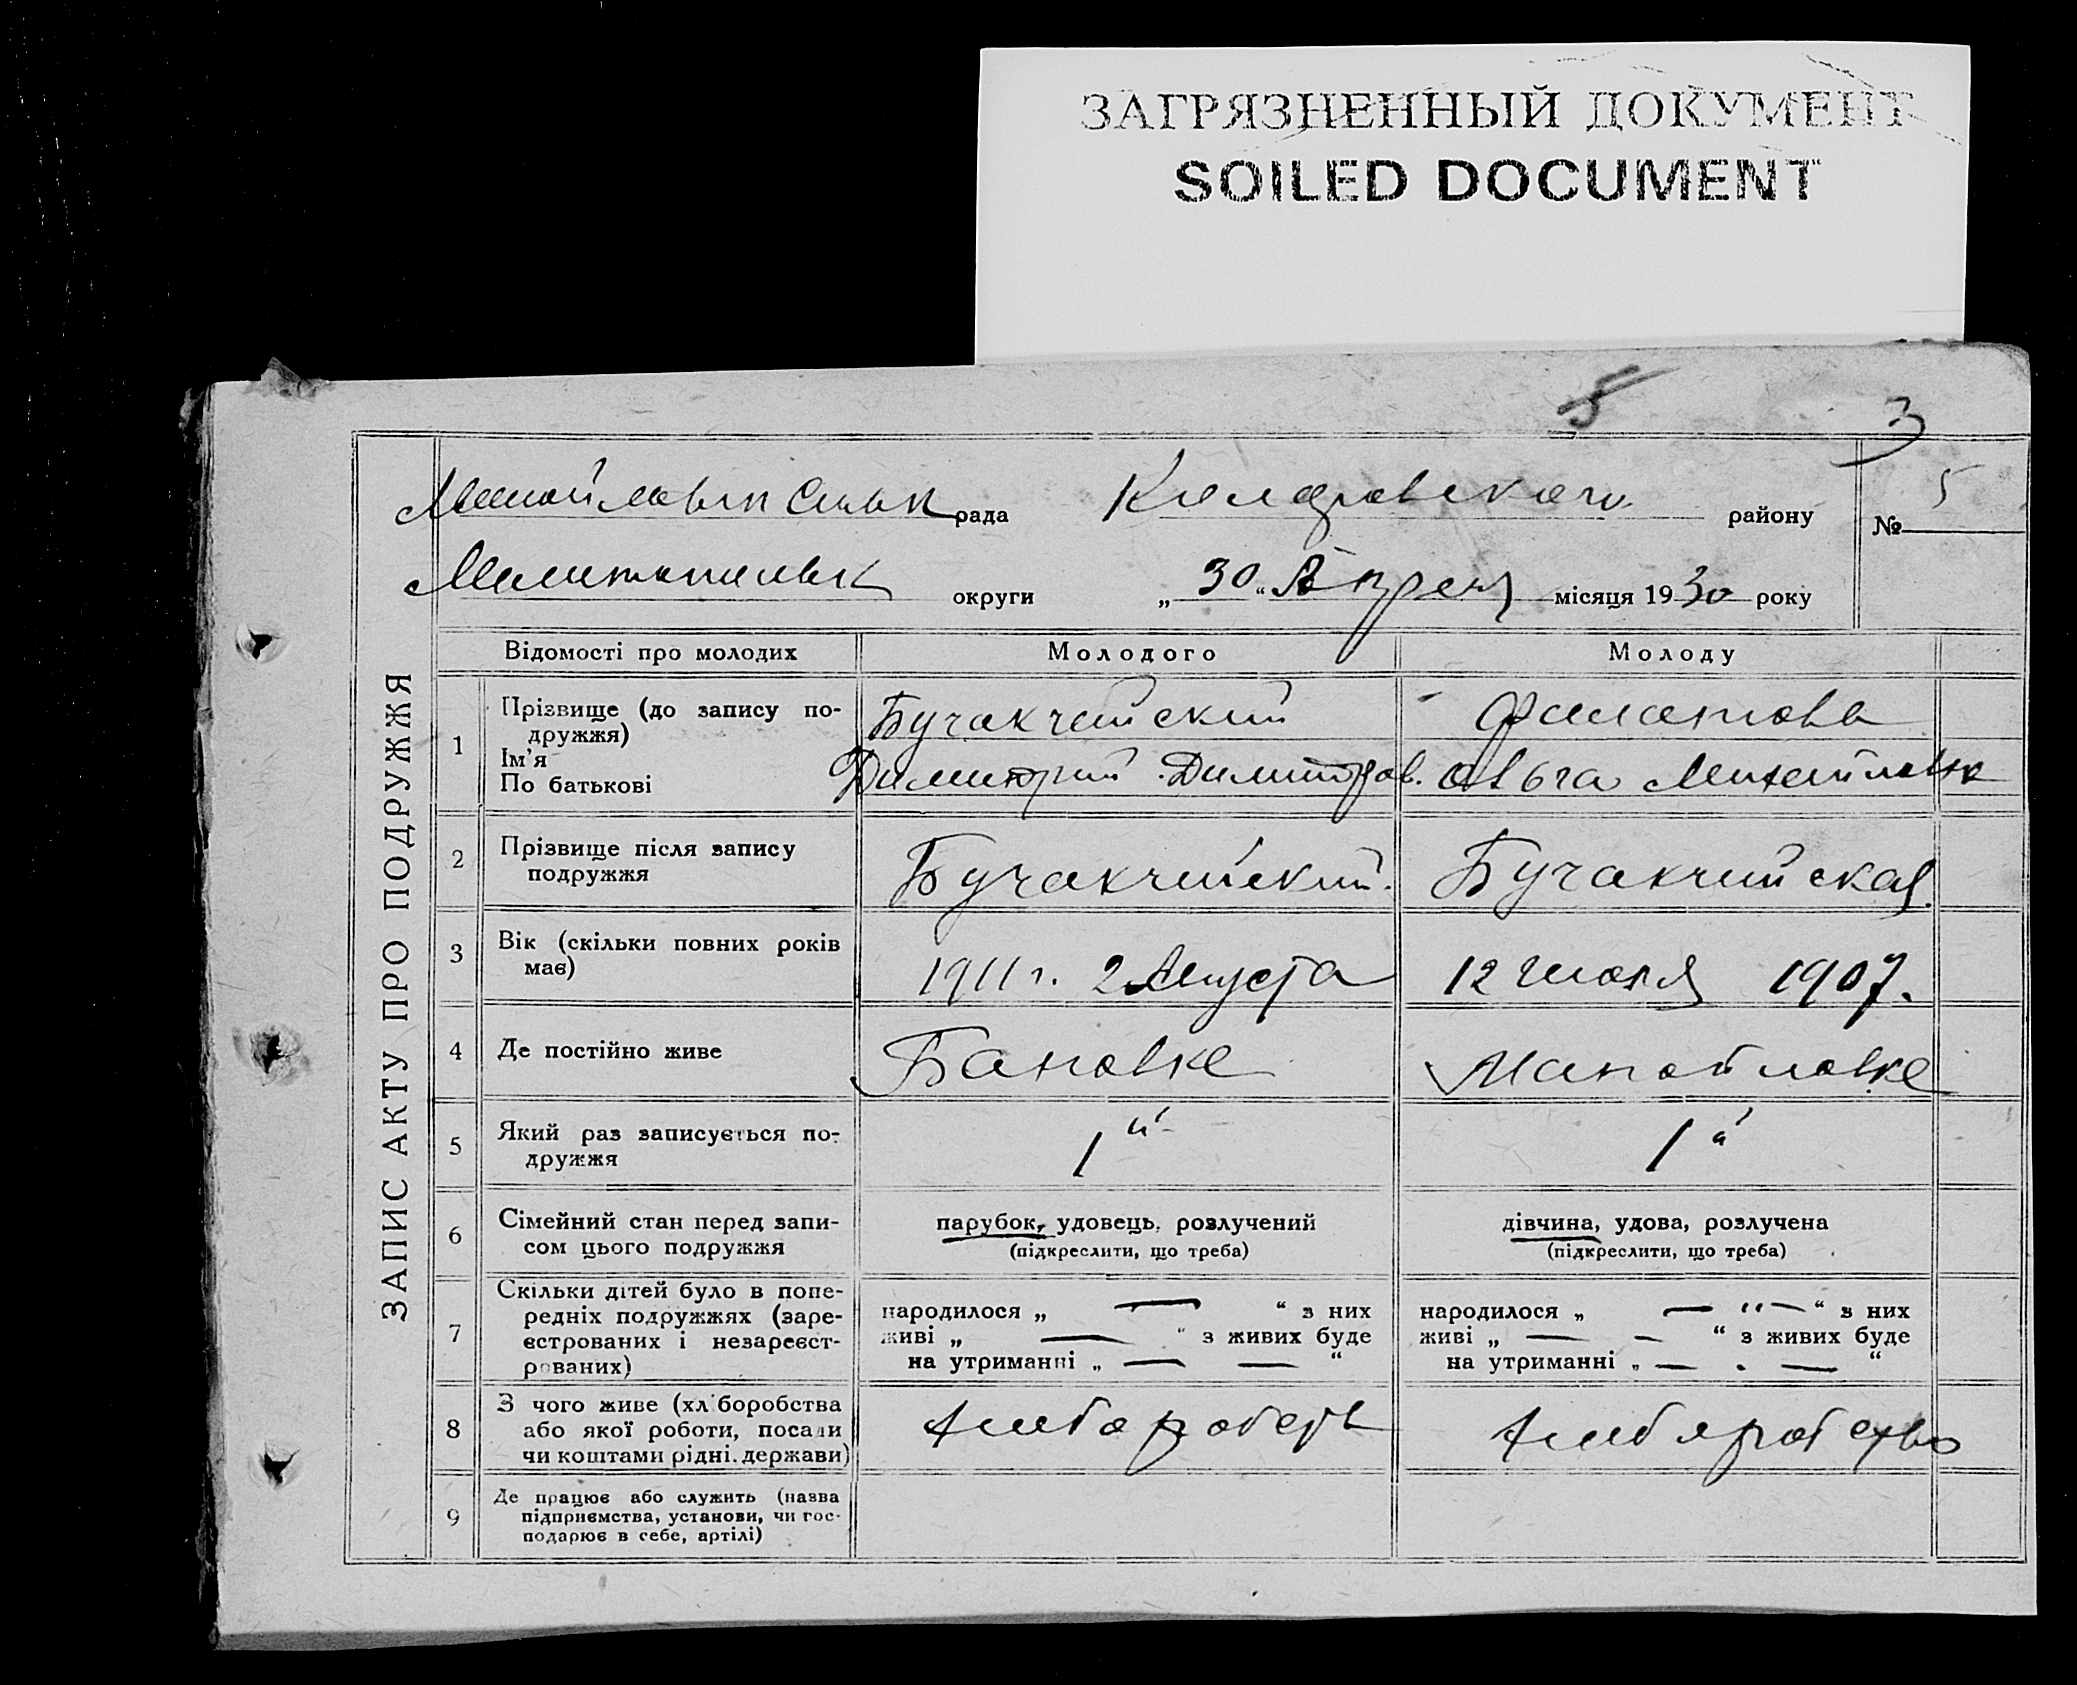 ЗАГРЯЗНЕННЫЙ ДОКУМЕНТ
SOILED DOCUMENT
5
3
рада
району
№ 5
округи „30“ Апреля місяця 1930 року
ЗАПИС АКТУ ПРО ПОДРУЖЖЯ
Відомості про молодих
Молодого
Молоду
1
Прізвище (до запису по-
дружжя)
Ім'я
По батькові
Бучакчийский
Димитрий Димитров.
Филатова
Ольга Михайловна
2
Прізвище після запису
подружжя
Бучакчийский.
Бучакчийская.
3
Вік (скільки повних років
має)
1911 г. 2 Августа
12 Июля 1907.
4
Де постійно живе
Бановке
Манойловке
5
Який раз записується по-
дружжя
1й
1й
6
Сімейний стан перед запи-
сом цього подружжя
парубок, удовець, розлучений
(підкреслити, що треба)
дівчина, удова, розлучена
(підкреслити, що треба)
7
Скільки дітей було в попе-
редніх подружжях (заре-
єстрованих і незареєст-
рованих)
народилося „ — “ з них
живі „ — “ з живих буде
на утриманні „ — — “
народилося „ — “ — “ з них
живі „ — — “ з живих буде
на утриманні „ — . — “
8
З чого живе (хліборобства
або якої роботи, посади
чи коштами рідні. держави)
9
Де працює або служить (назва
підприємства, установи, чи гос-
подарює в себе, артілі)